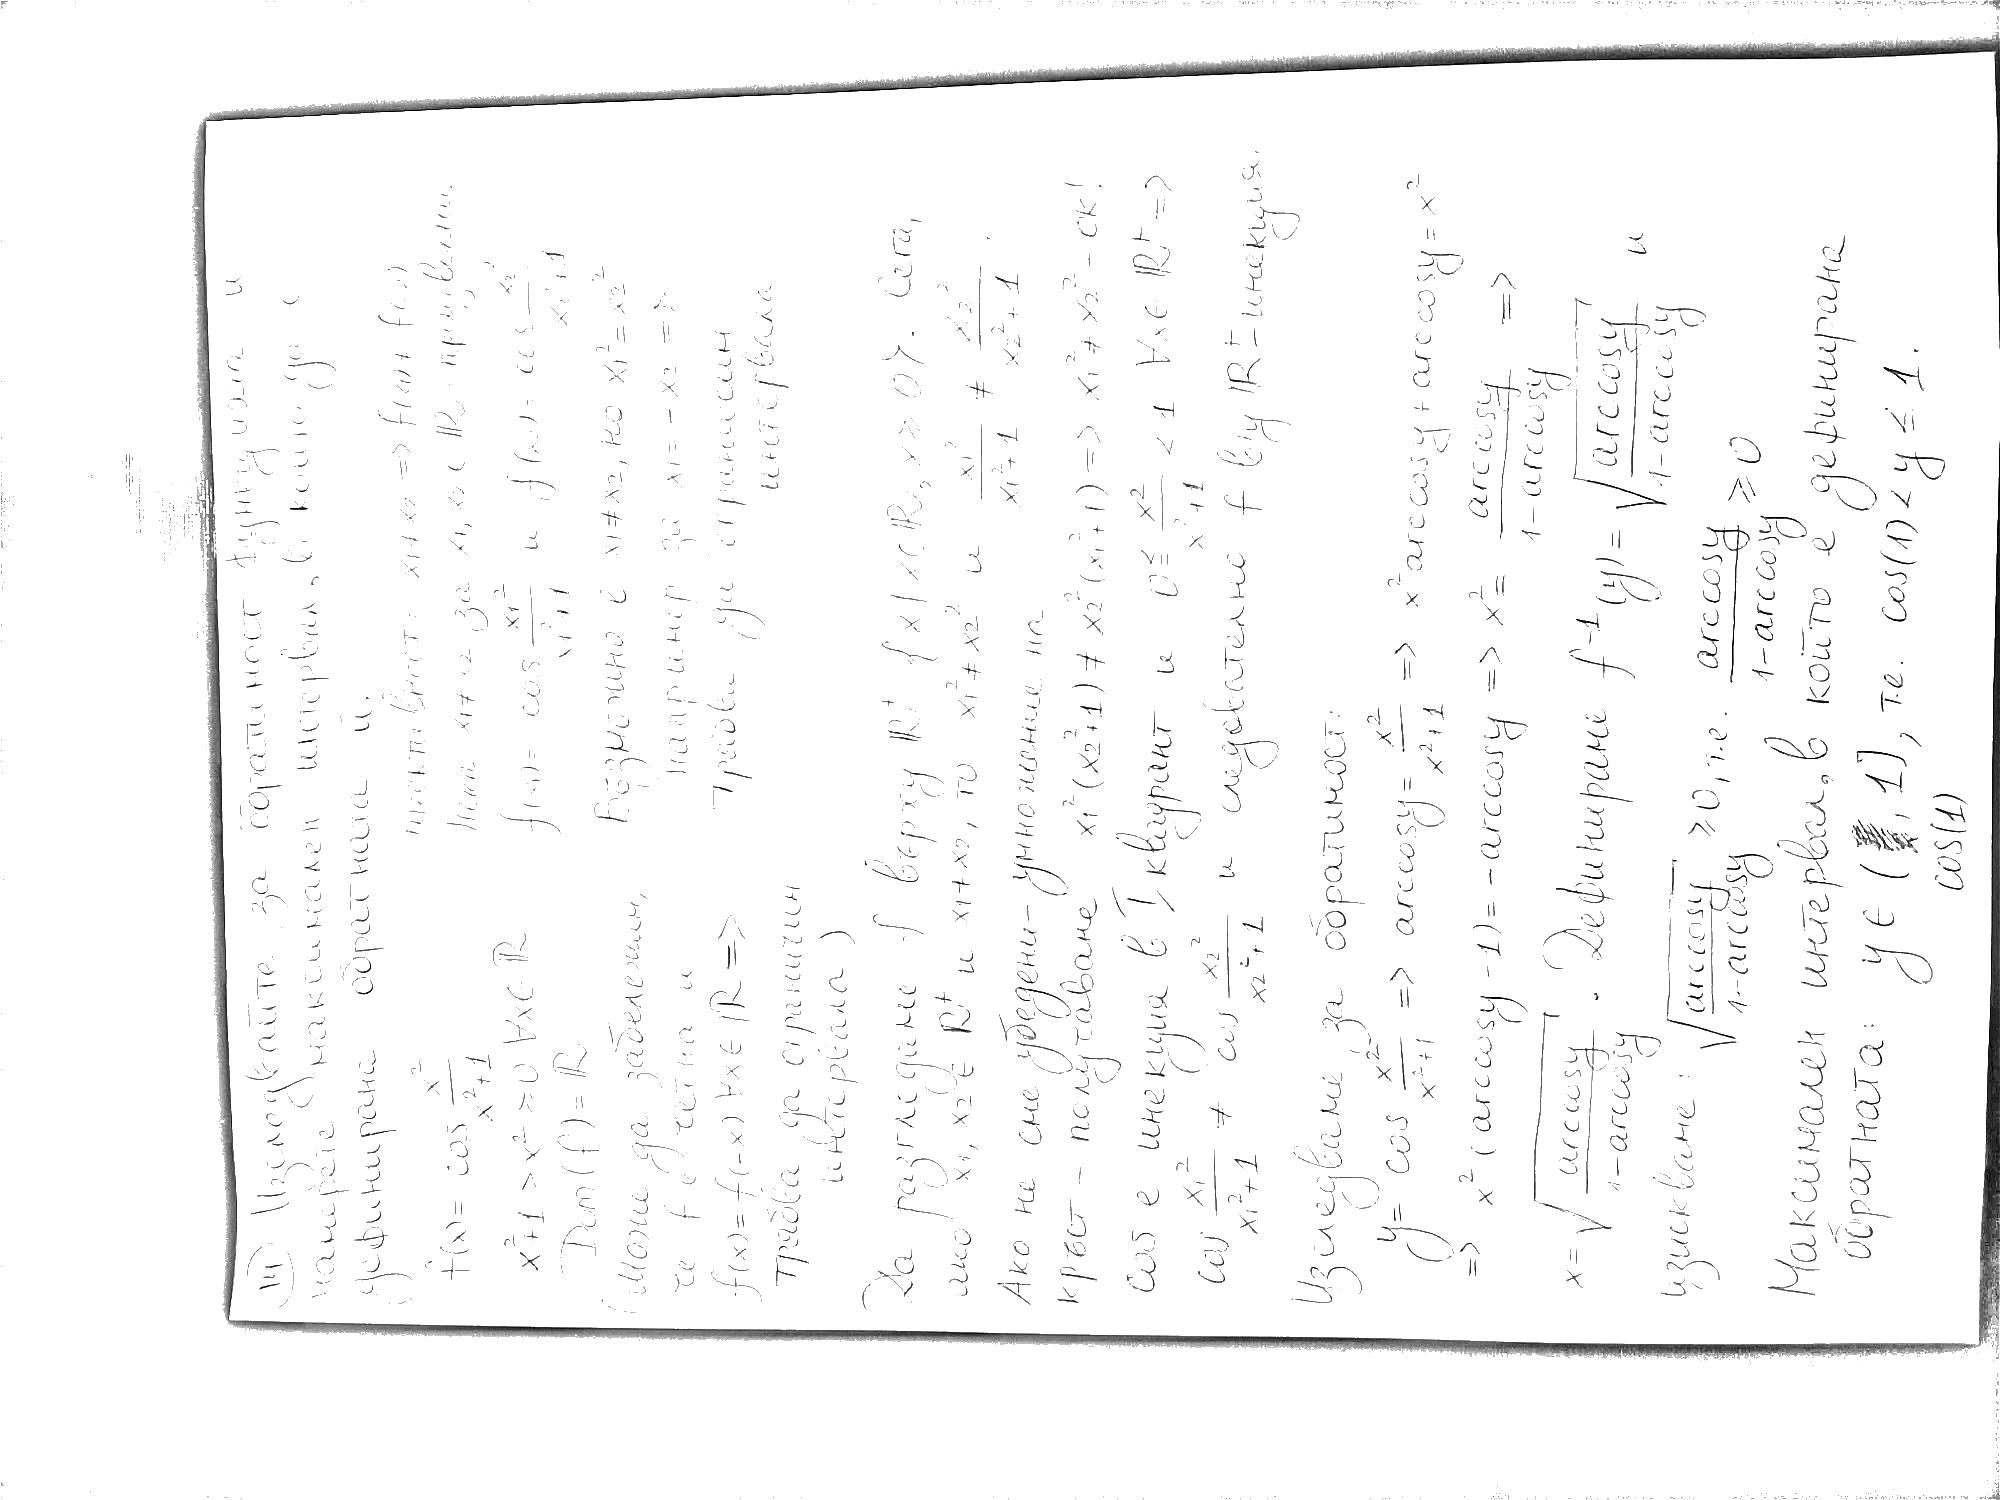 14) Изследвайте за обратимост функцията и
намерете максимален интервал, в който да е
дефинирана обратната ѝ.
f(x) = cos x²/(x²+1)
x²+1 > x² ≥ 0 ∀x∈ℝ
Dom(f) = ℝ
(Може да забележим,
че f е четна и
f(x) = f(-x) ∀x∈ℝ =>
трябва да ограничим
интервала)
инективност: x₁≠x₂ => f(x₁)≠f(x₂)
Нека x₁≠x₂ за x₁, x₂ ∈ ℝ - произволни.
f(x₁) = cos x₁²/(x₁²+1) и f(x₂) = cos x₂²/(x₂²+1)
Възможно е x₁≠x₂, но x₁² = x₂²
например за x₁ = -x₂ =>
трябва да ограничим
интервала
Да разгледаме f върху ℝ⁺ {x | x∈ℝ, x ≥ 0}. Сега,
ако x₁, x₂ ∈ ℝ⁺ и x₁≠x₂, то x₁²≠x₂² и x₁²/(x₁²+1) ≠ x₂²/(x₂²+1).
Ако не сме убедени - умножение на
кръст - получаваме x₁²(x₂²+1) ≠ x₂²(x₁²+1) => x₁²≠x₂² - ок!
cos е инекция в I квадрант и 0 ≤ x²/(x²+1) < 1 ∀x∈ℝ⁺ =>
cos x₁²/(x₁²+1) ≠ cos x₂²/(x₂²+1) и следователно f в/у ℝ⁺ - инекция.
Изследваме за обратимост:
y = cos x²/(x²+1) => arccosy = x²/(x²+1) => x²arccosy + arccosy = x²
=> x²(arccosy - 1) = -arccosy => x² = arccosy/(1-arccosy) =>
x = √(arccosy/(1-arccosy)). Дефинираме f⁻¹(y) = √(arccosy/(1-arccosy)) и
изискваме: √(arccosy/(1-arccosy)) ≥ 0, т.е. arccosy/(1-arccosy) ≥ 0
Максимален интервал, в който е дефинирана
обратната: y ∈ (cos(1), 1], т.е. cos(1) < y ≤ 1.